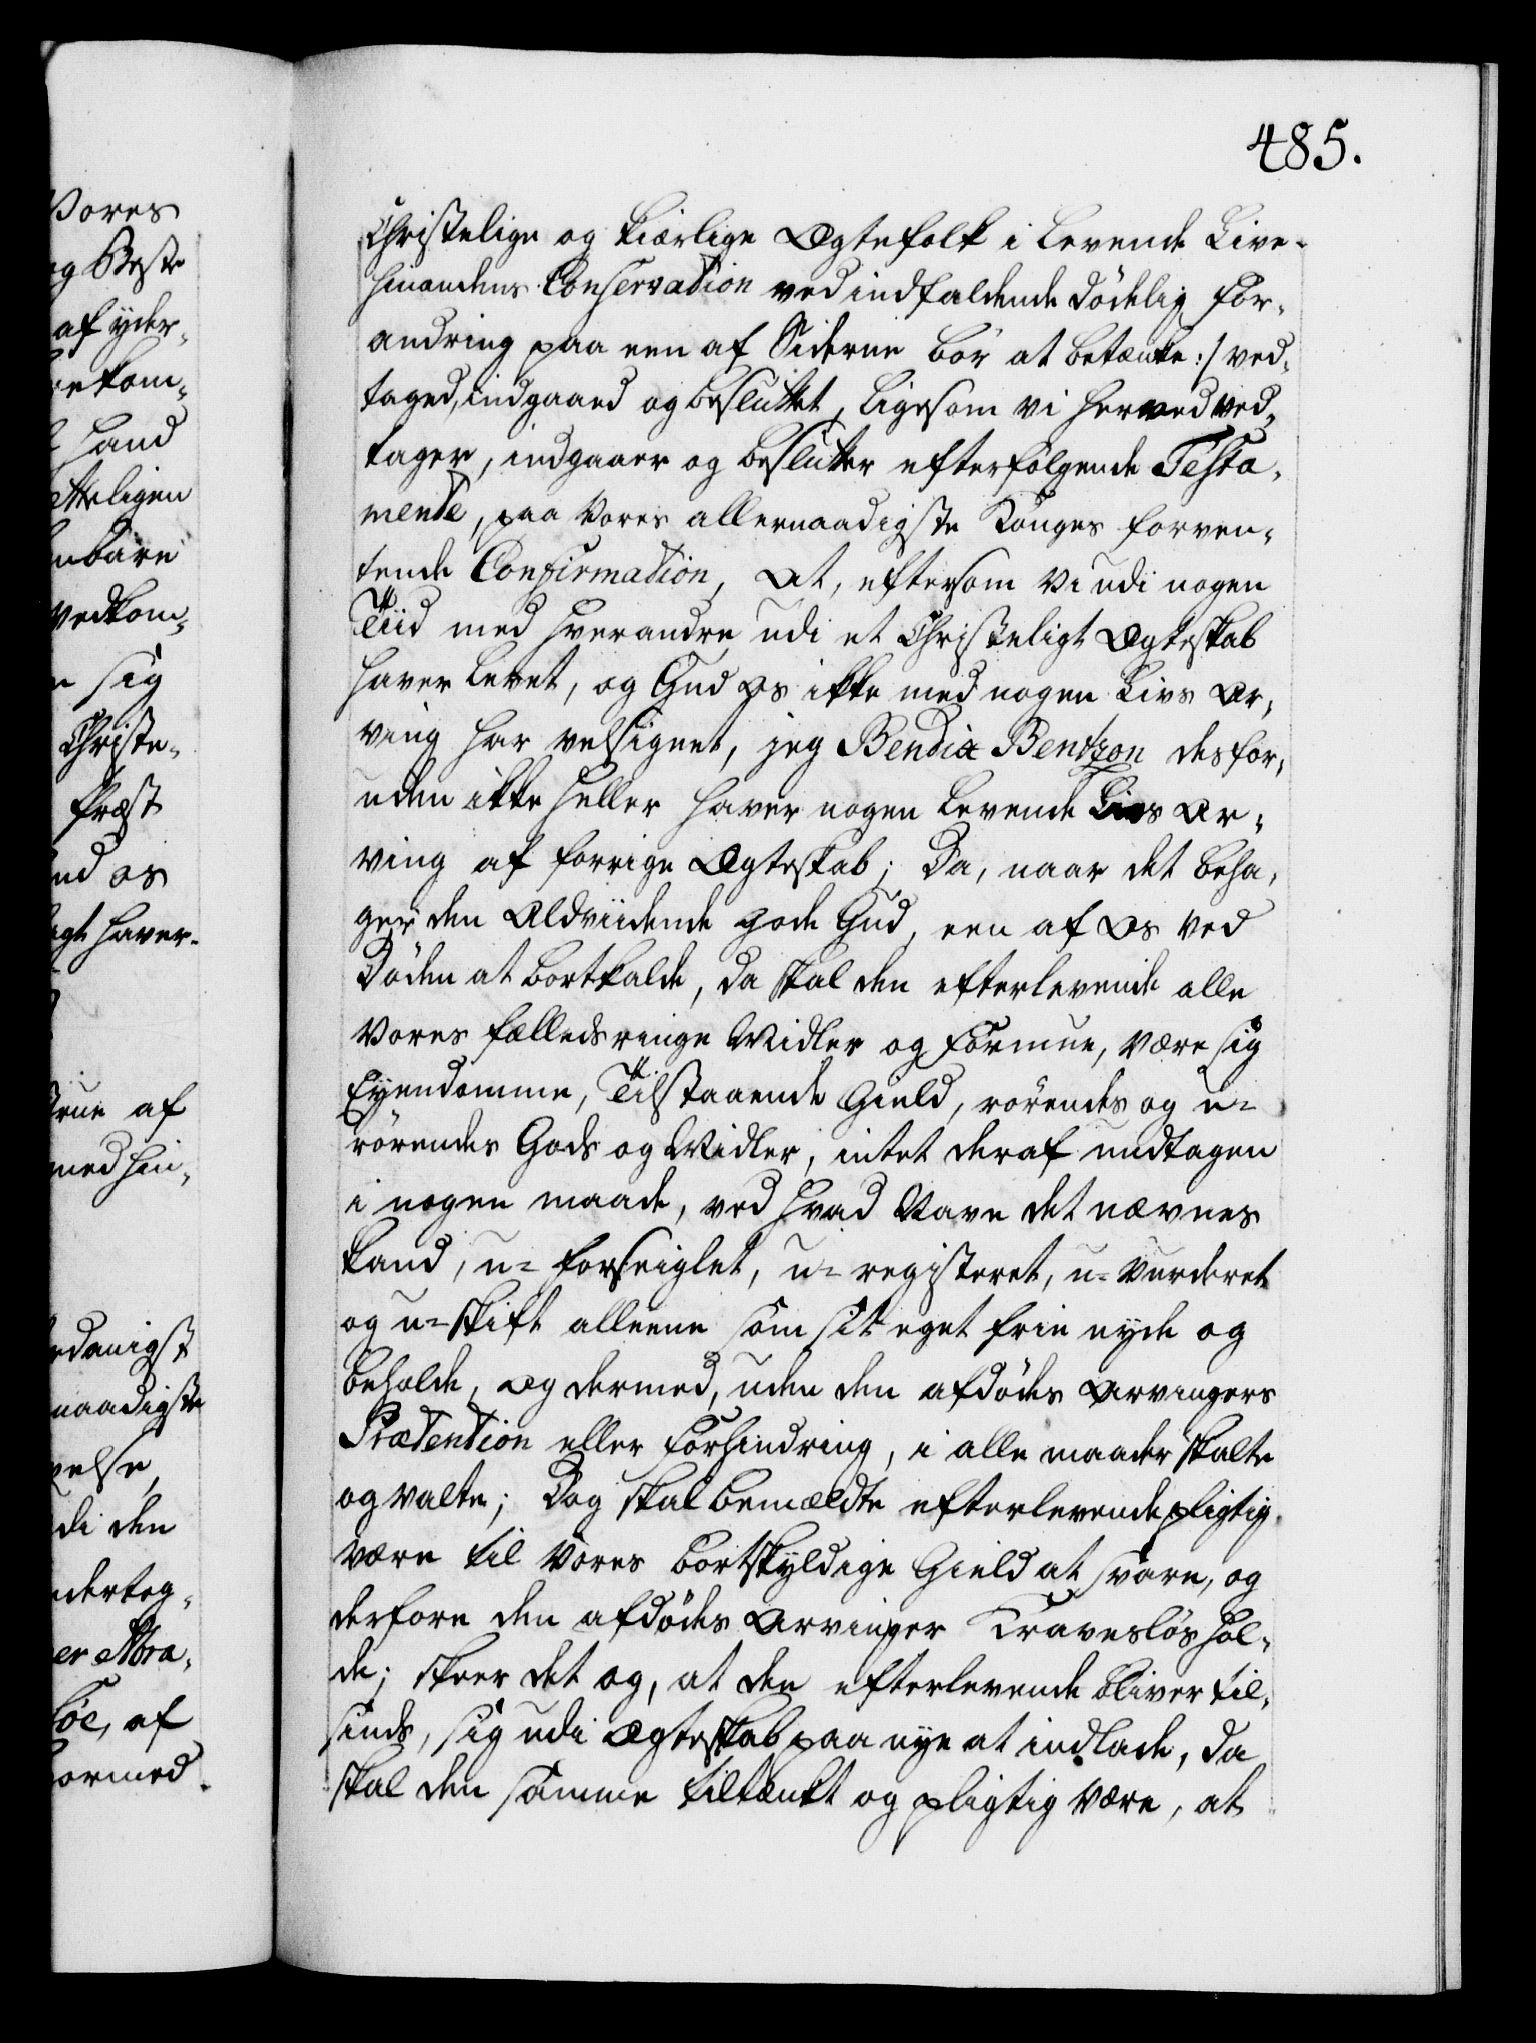 485.
Christelige og kiærlige Ægtefolk i levende Live
hinandens Conservation ved indfaldende dödelig for-
andring paa een af Siderne bör at betænke :/ ved-
taged, indgaaed og besluttet, ligesom vi herved ved-
tager, indgaaer og beslutter efterfölgende Testa-
mente, paa Vores allernaadigste Konges forven-
tende Confirmation, At, eftersom Vi udi nogen
Tiid med hverandre udi et Christeligt Ægteskab
haver levet, og Gud Os ikke med nogen Livs Ar-
ving har velsignet, jeg Bendix Bentzon desfor-
uden ikke heller haver nogen levende Livs Ar-
ving af forrige Ægteskab; Da, naar det beha-
ger den Aldviidende gode Gud, een af Os ved
Döden at bortkalde, da skal den efterlevende alle
Vores fælleds ringe Midler og Formue, være sig
Eyendomme, Tilstaaende Gield, rörendes og u-
rörendes Gods og Midler, intet deraf undtagen
i nogen maade, ved hvad Navn det nævnes
kand, u-forseiglet, u-registeret, u-vurderet
og u-skift alleene som sit eget frie nyde og
beholde, og dermed, uden den afdödes Arvingers
Prætention eller Forhindring, i alle maader skalte
og valte; Dog skal bemældte efterlevende pligtig
være til Vores bortskyldige Gield at svare, og
derfore den afdödes Arvinger Kraveslös hol-
de; skeer det og, at den efterlevende bliver til-
sinds, sig udi Ægteskab paa nye at indlade, da
skal den samme tiltænkt og pligtig være, at
Vores
og Beste
af yder-
kom-
hand
ligen
vedkom-
sig
Christe-
os
haver
af
med hin-
naadigste
else,
di den
af